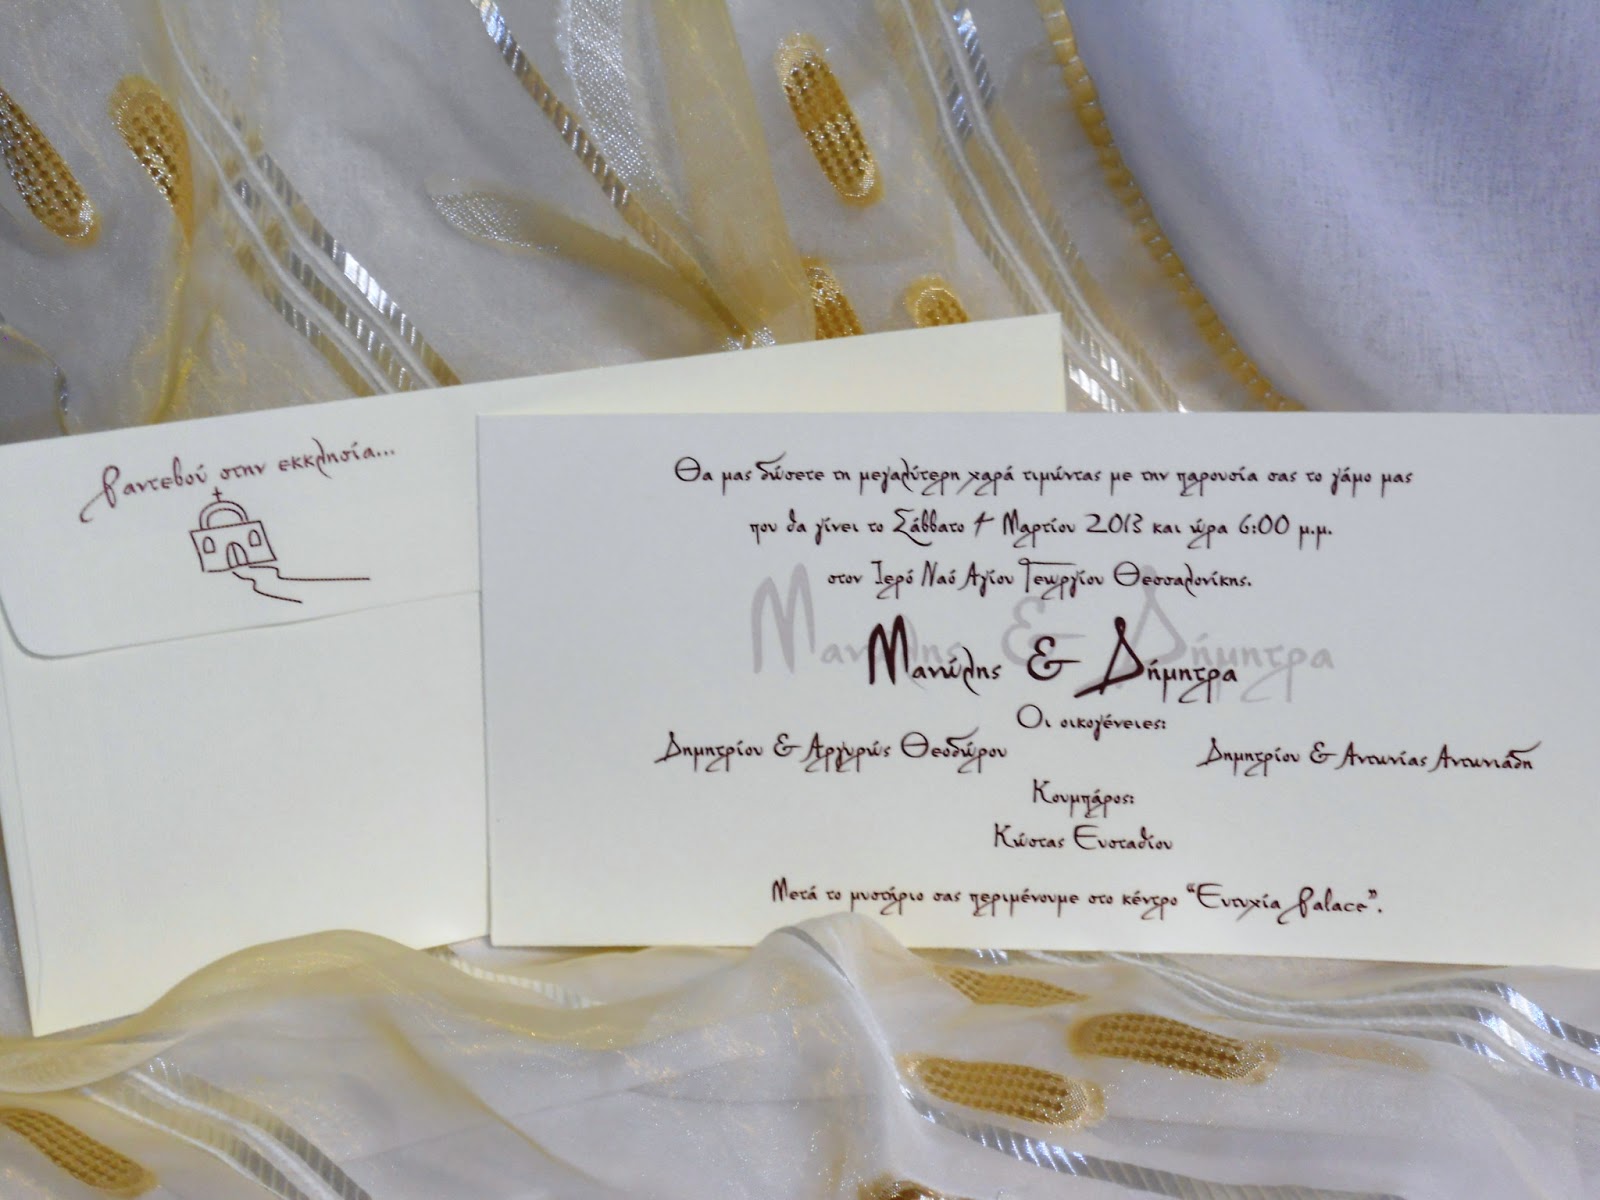 Ραντεβού στην εκκλησία...
Θα μας δώσετε τη μεγαλύτερη χαρά τιμώντας με την παρουσία σας το γάμο μας
που θα γίνει το Σάββατο 4 Μαρτίου 2013 και ώρα 6:00 μ.μ.
στον Ιερό Ναό Αγίου Γεωργίου Θεσσαλονίκης.
Μανώλης & Δήμητρα
Μανώλης & Δήμητρα
Οι οικογένειες:
Δημητρίου & Αργυρώς Θεοδώρου
Δημητρίου & Αντωνίας Αντωνιάδη
Κουμπάρος:
Κώστας Ευσταθίου
Μετά το μυστήριο σας περιμένουμε στο κέντρο “Ευτυχία Palace”.